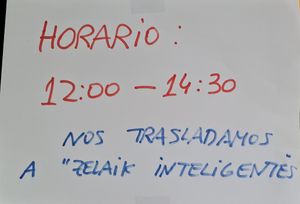 HORARIO :
12:00 – 14:30
NOS TRASLADAMOS
A "ZELAIK INTELIGENTES